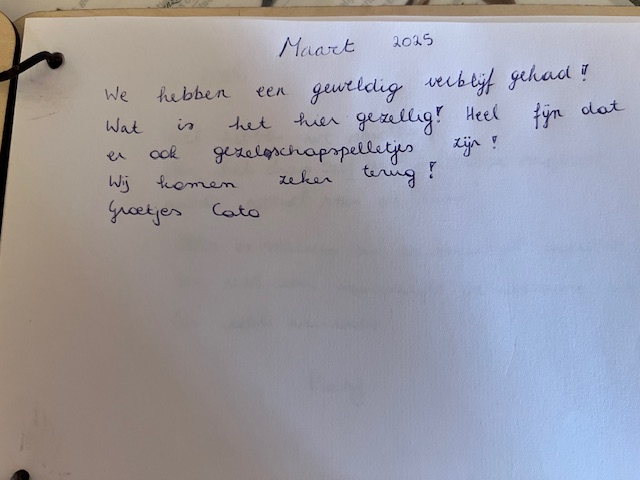 Maart 2025
We hebben een geweldig verblijf gehad!
Wat is het hier gezellig! Heel fijn dat
er ook gezelschapspelletjes zijn!
Wij komen zeker terug!
Groetjes Cato